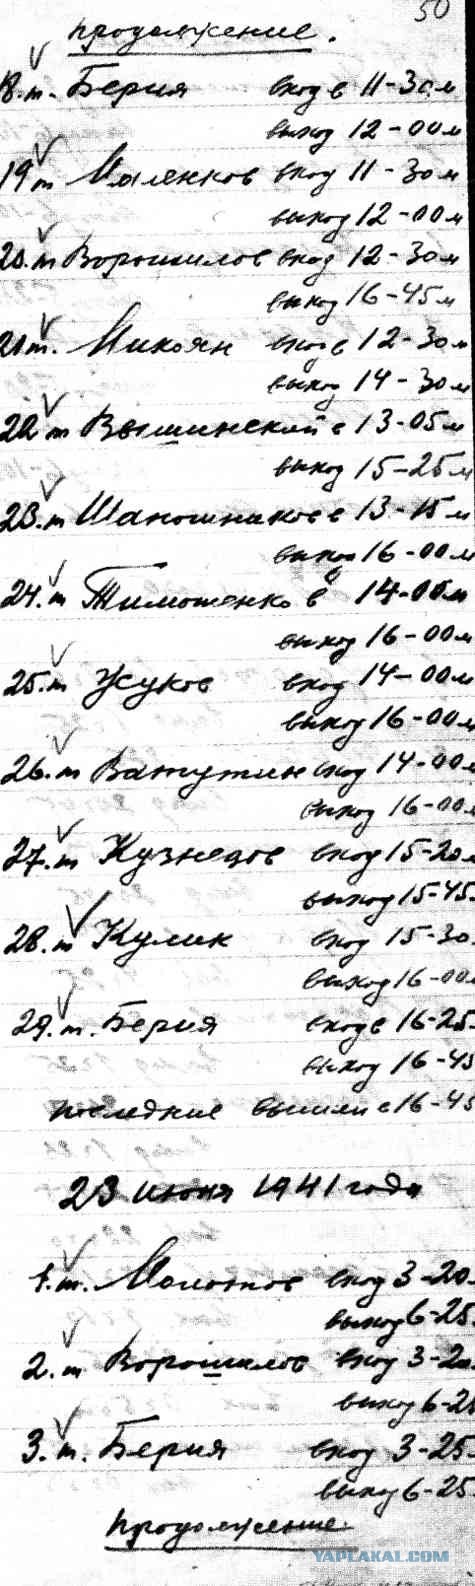 50
продолжение.
18.т. Берия вход в 11-30м
выход 12-00м
19т Маленков вход 11-30м
выход 12-00м
20.т Ворошилов вход 12-30м
выход 16-45м
21т. Микоян вход в 12-30м
выход 14-30м
22т Вышинский в 13-05м
выход 15-25м
23.т Шапошников в 13-15м
выход 16-00м
24.т Тимошенко в 14-00м
выход 16-00м
25.т Жуков вход 14-00м
выход 16-00м
26.т Ватутин вход 14-00м
выход 16-00м
27.т Кузнецов вход 15-20м
выход 15-45
28.т Кулик вход 15-30
выход 16-00м
29.т. Берия вход в 16-25
выход 16-45
последние вышли в 16-45
23 июня 1941 года
1.т. Молотов вход 3-20
выход 6-25
2.т Ворошилов вход 3-20
выход 6-25
3.т. Берия вход 3-25
выход 6-25
продолжение
YAPLAKAL.COM